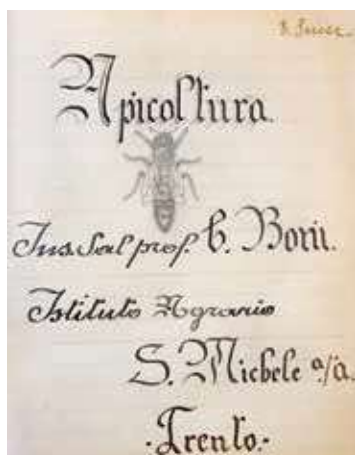 Apicoltura.
Ins. dal prof. C. Boni.
Istituto Agrario
S. Michele a/a.
·Trento.·